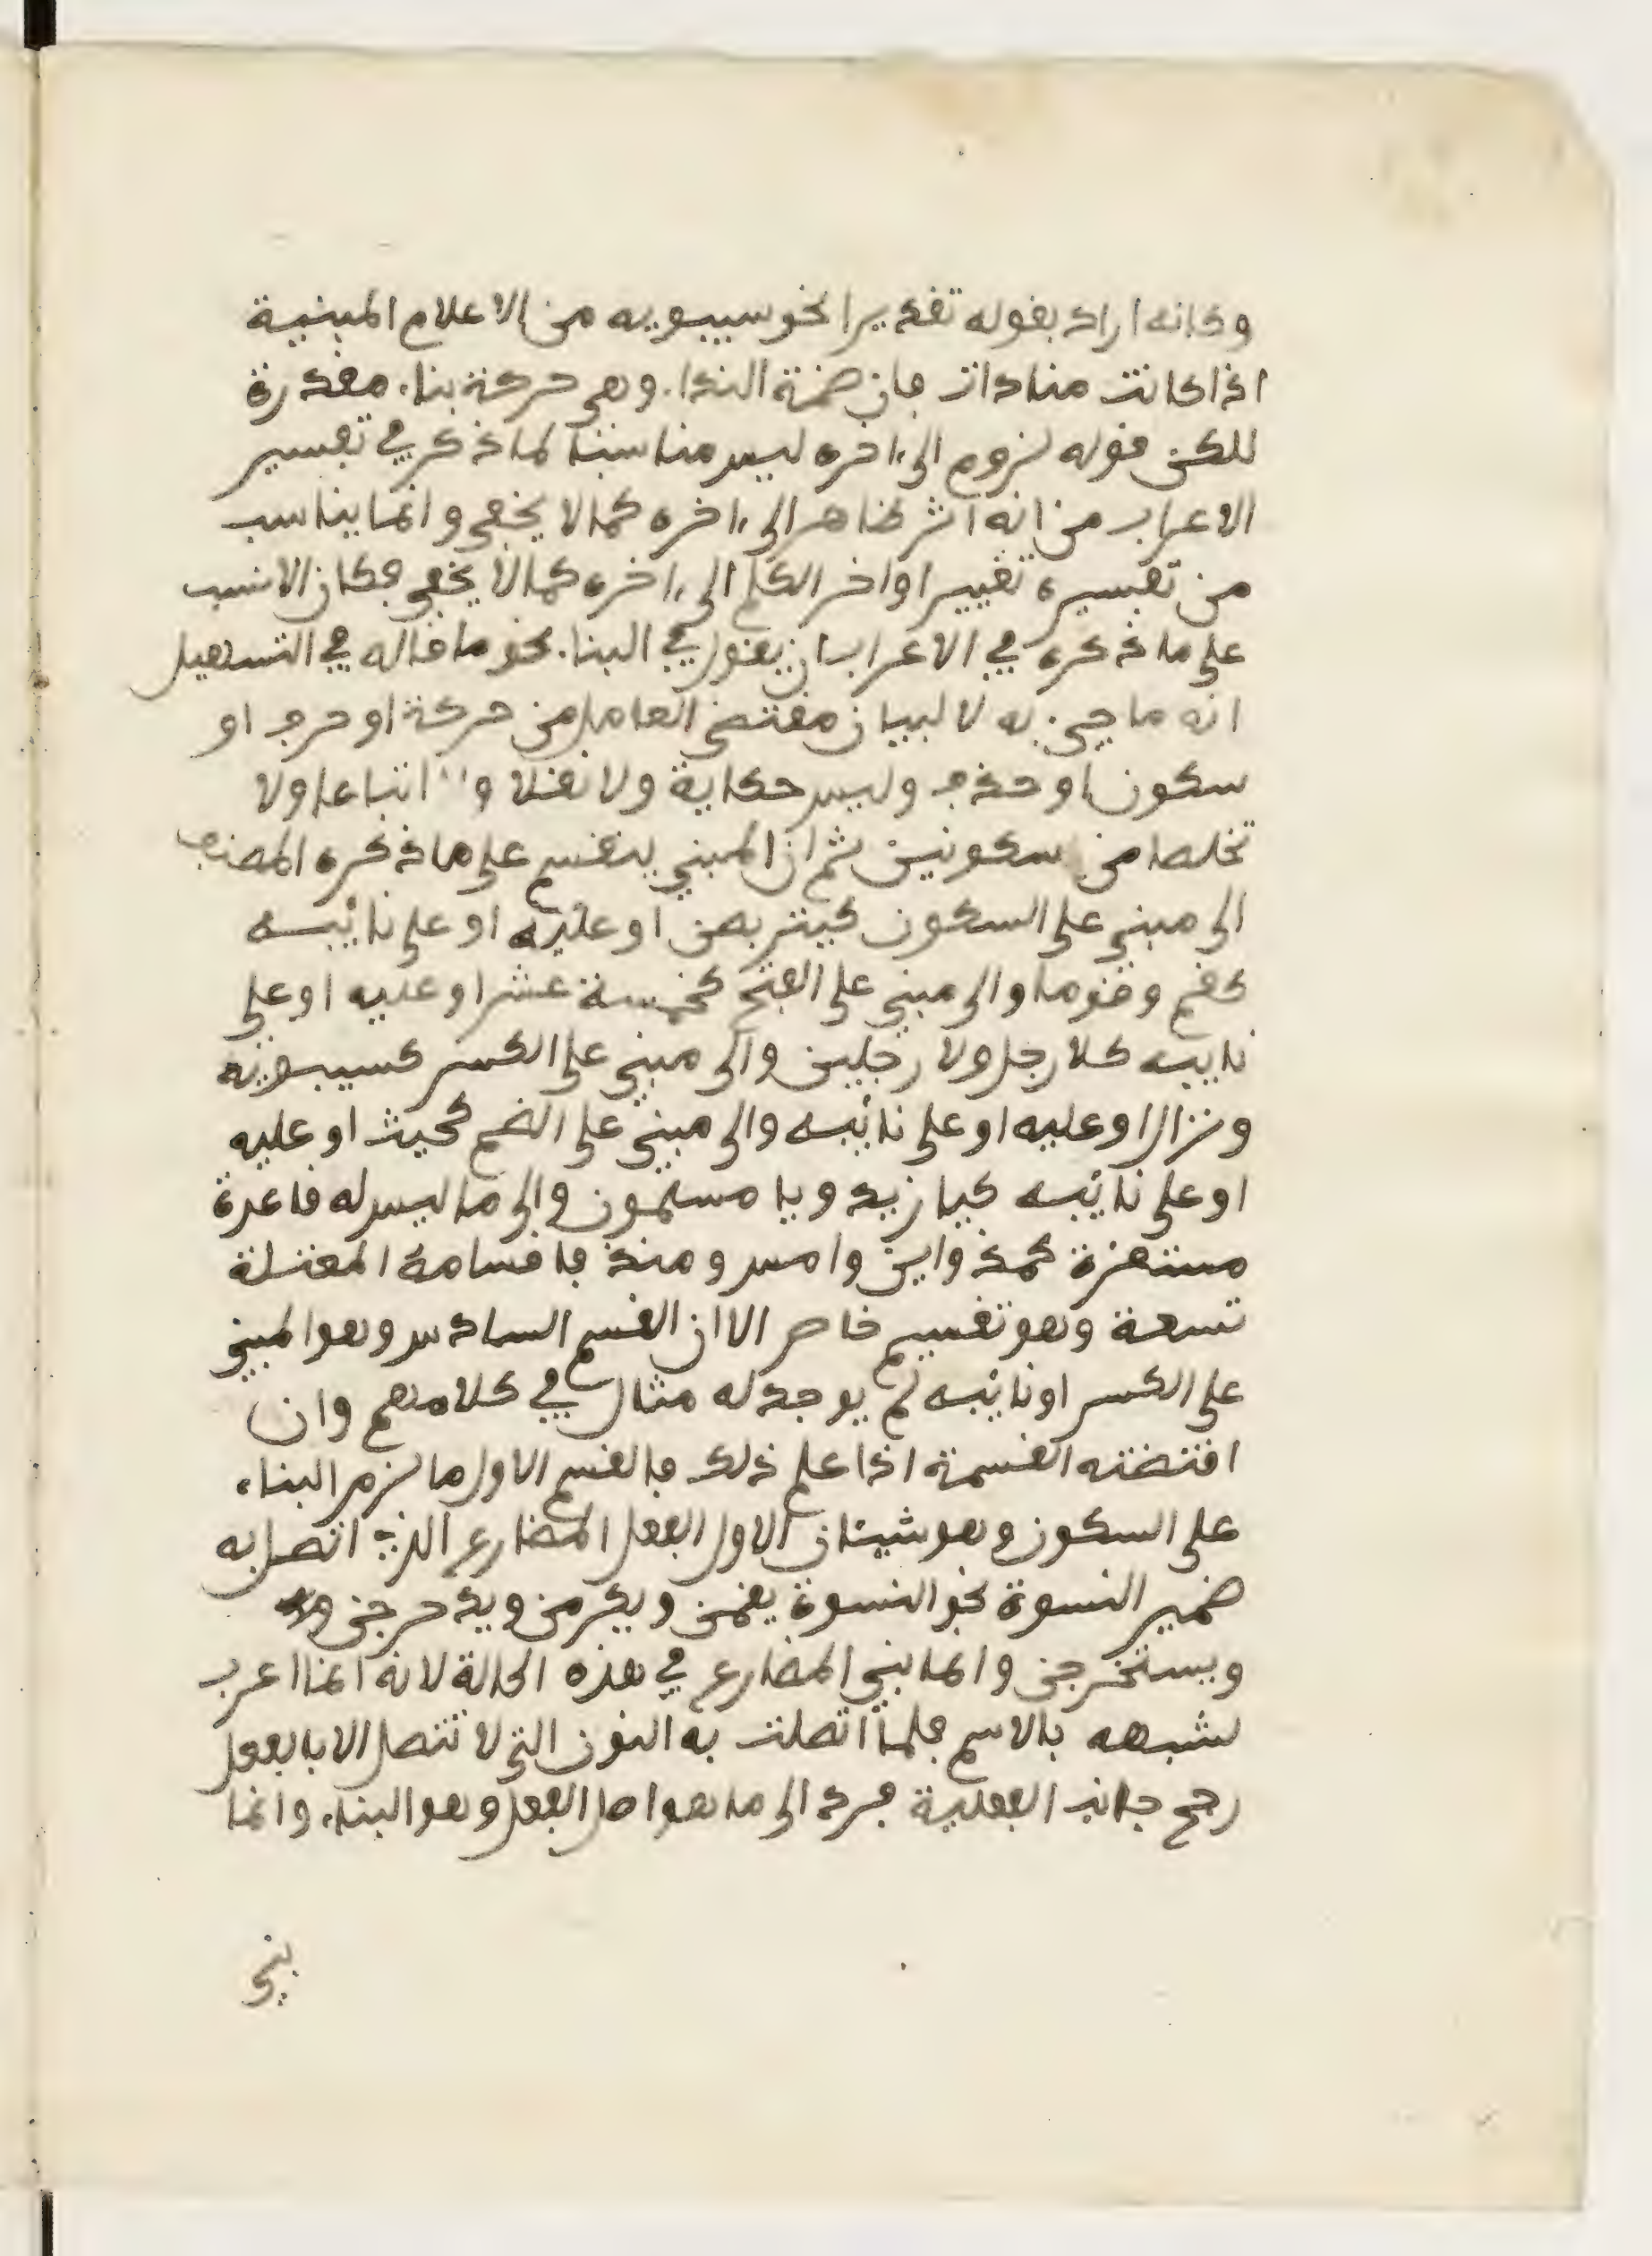 وكانه اراد بقوله تقديرا نحو سيبويه من الاعلام المبنية
اذا كانت منادات فان ضمة الندا، وهي حركة بنا، مقدرة
للكن قوله لزوم الى ءاخره ليس مناسبا لما ذكر في تفسير
الاعراب من انه اثر ظاهر الى ءاخره كما لا يخفى وانما يناسب
من تفسيره تغيير اواخر الكلم الى ءاخره كما لا يخفى فكان الانسب
على ما ذكره في الاعراب ان يقول في البنا، نحو ما قاله في التسهيل
انه ما جيء به لا لبيان مقتضى العامل من حركة او حرف او
سكون او حذف وليس حكاية ولا نقلا و لا اتباعا ولا
تخلصا من سكونين ثم ان المبني ينقسم على ما ذكره المصنف
الى مبني على السكون كيتربصن او عليه او على نائبه
كقم وقوما والى مبني على الفتح كخمسة عشر او عليه او على
نايبه كلا رجل ولا رجلين والى مبني على الكسر كسيبويه
ونزال او عليه او على نائبه والى مبني على الضم كحيث او عليه
او على نائبه كيا زيد ويا مسلمون والى ما ليس له قاعدة
مستقرة كمذ واين وامس ومنذ فاقسامه المفصلة
تسعة وهو تقسيم خاص الا ان القسم السادس وهو المبني
على الكسر او نائبه لم يوجد له مثال في كلامهم وان
اقتضته القسمة اذا علم ذلك فالقسم الاول ما لزم البناء
على السكون وهو شيئان الاول الفعل المضارع الذي اتصل به
ضمير النسوة نحو النسوة يقمن ويكرمن ويدحرجن
ويستخرجن وانما بني المضارع في هذه الحالة لانه انما اعرب
لشبهه بالاسم فلما اتصلت به النون التي لا تتصل الا بالفعل
رجح جانب الفعلية فرد الى ما هو اصل الفعل وهو البناء وانما
بني